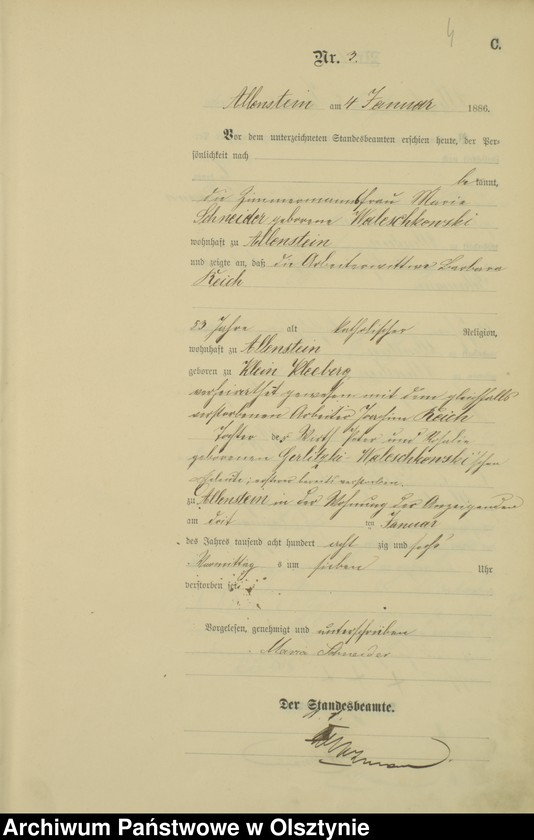 4
C.
Nr. 3.
Allenstein am 4 Januar 1886.
Vor dem unterzeichneten Standesbeamten erschien heute, der Per-
sönlichkeit nach
bekannt,
die Zimmermannsfrau Marie
Schneider geborene Waleschkowski
wohnhaft zu Allenstein
und zeigte an, daß die Arbeiterwittwe Barbara
Reich
53 Jahre alt katholischer Religion,
wohnhaft zu Allenstein
geboren zu Klein Kleeberg
verheirathet gewesen mit dem gleichfalls
verstorbenen Arbeiter Joachim Reich
Tochter der Wirth Peter und Rosalie
geborenen Gerlitzki-Waleschkowski'schen
Eheleute, verstorben.
zu Allenstein in der Wohnung der Anzeigenden
am drit ten Januar
des Jahres tausend acht hundert acht zig und sechs
Vormittags um sieben Uhr
verstorben sei
Vorgelesen, genehmigt und unterschrieben
Maria Schneider
Der Standesbeamte.
Archiwum Państwowe w Olsztynie